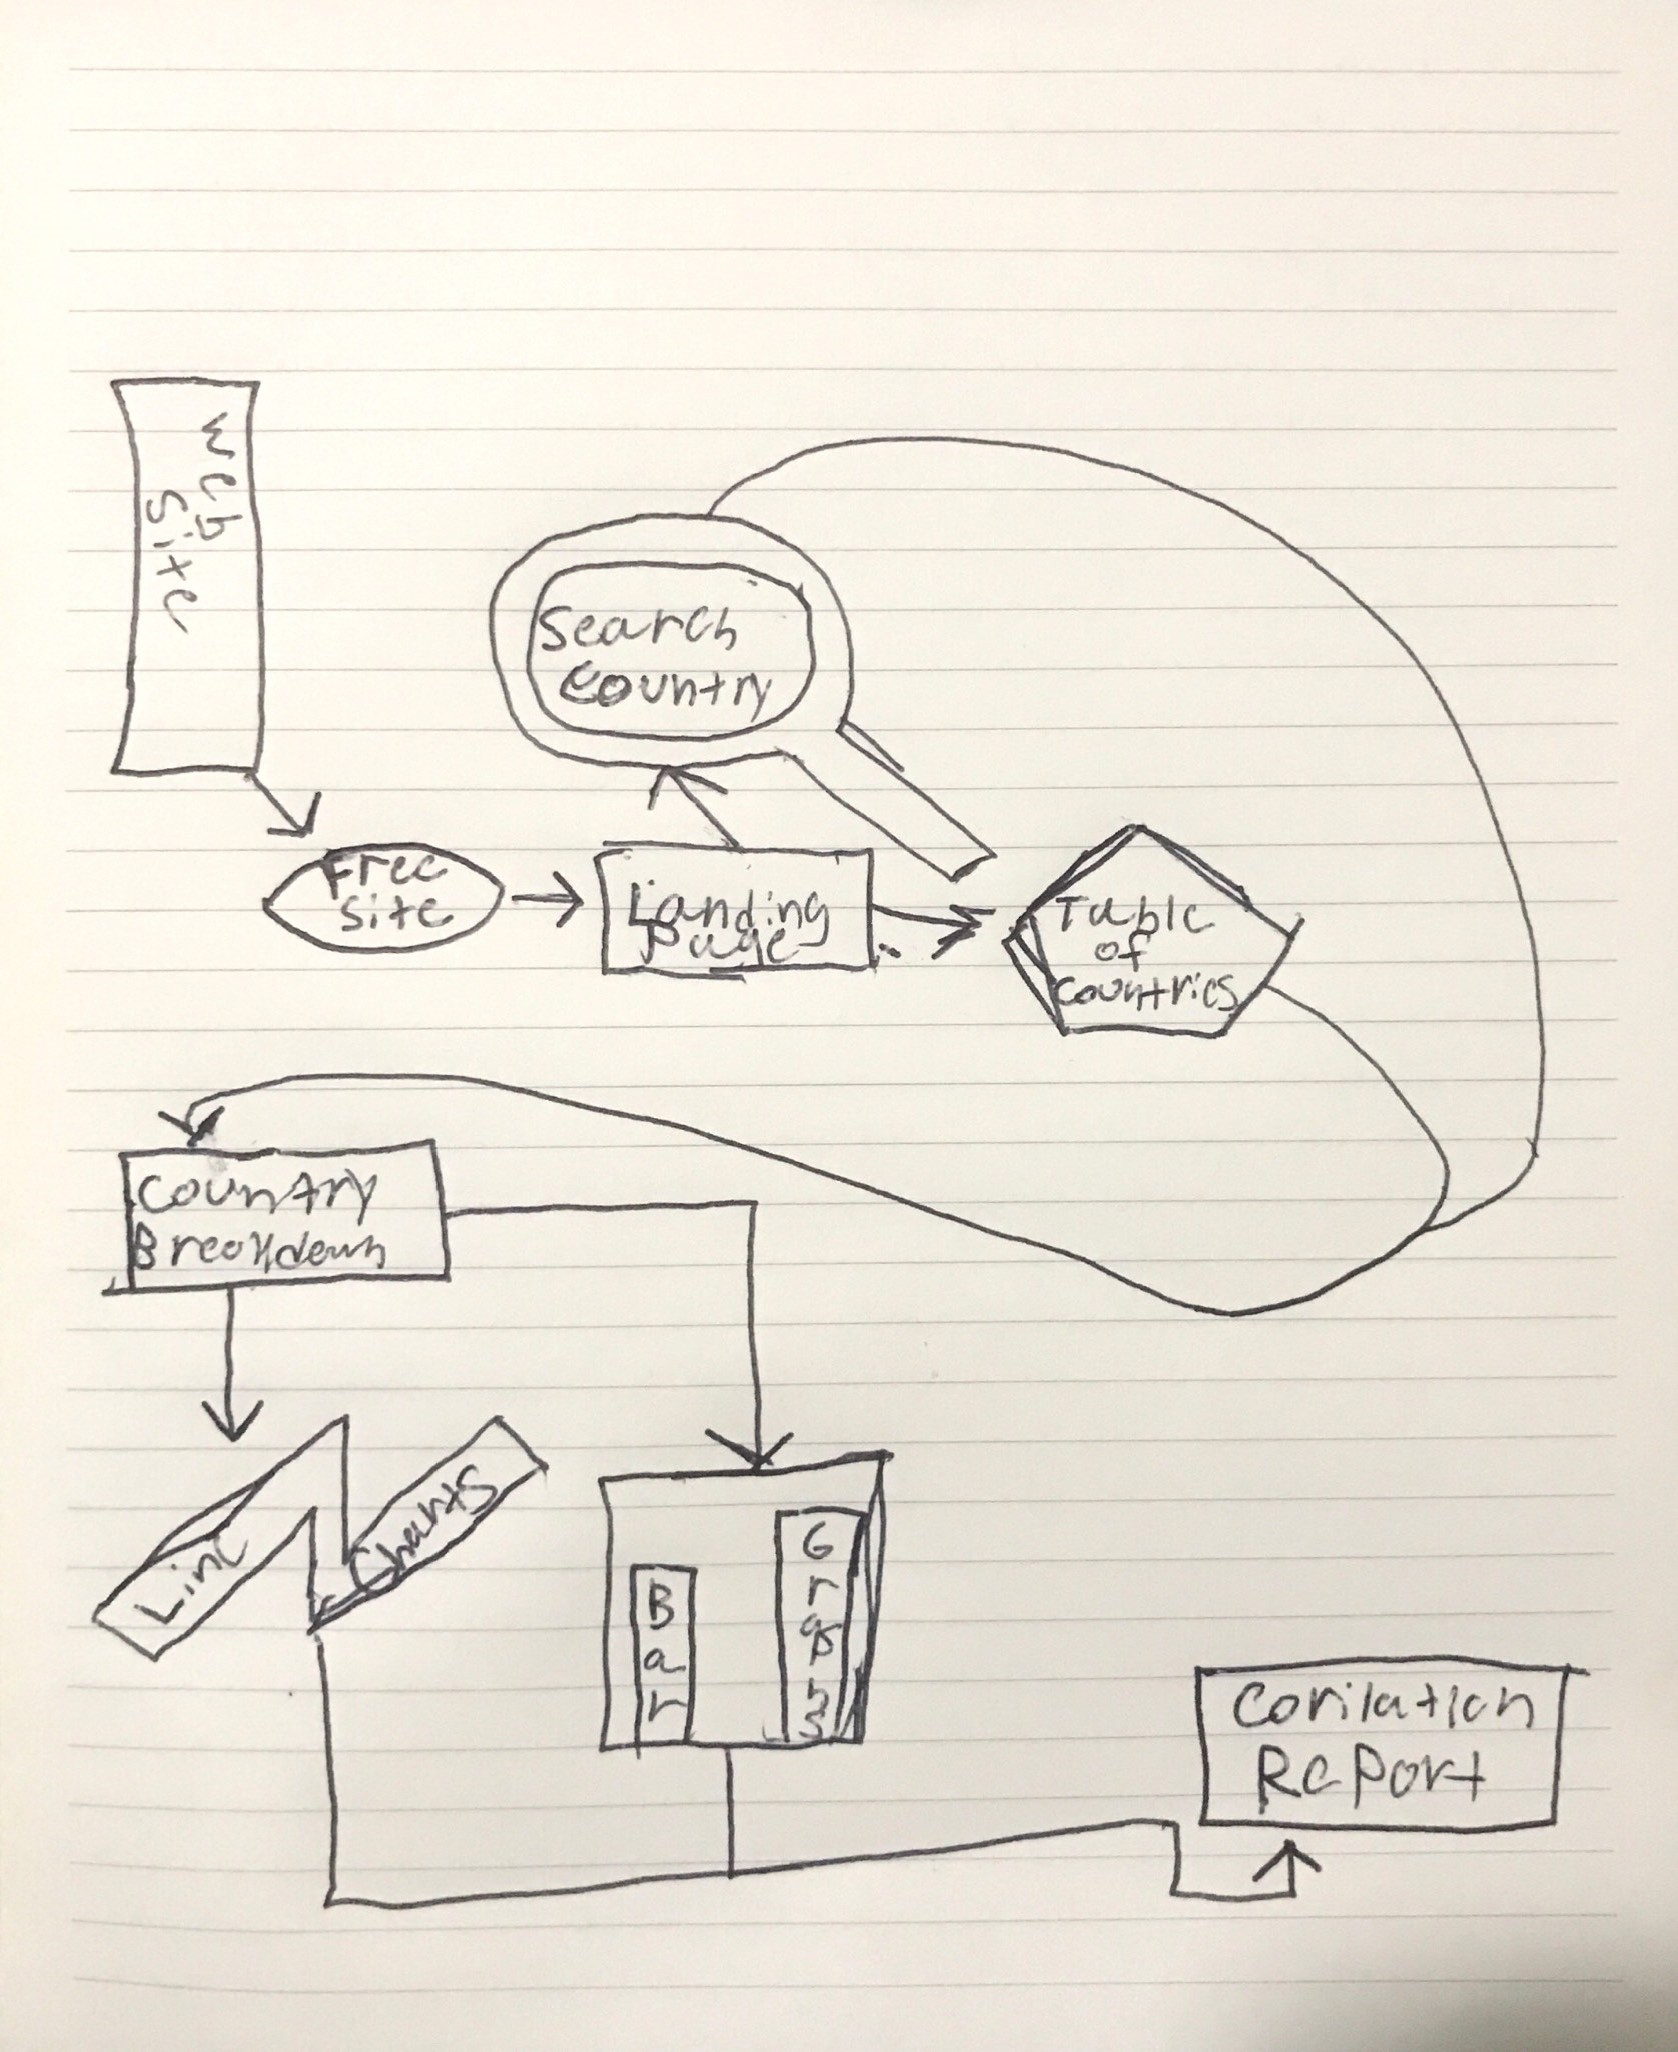 Web
Site
Search
Country
Free
Site
Landing
Page
Table
of
Countries
Country
Breakdown
Line
Charts
Bar
Graphs
Corilation
Report